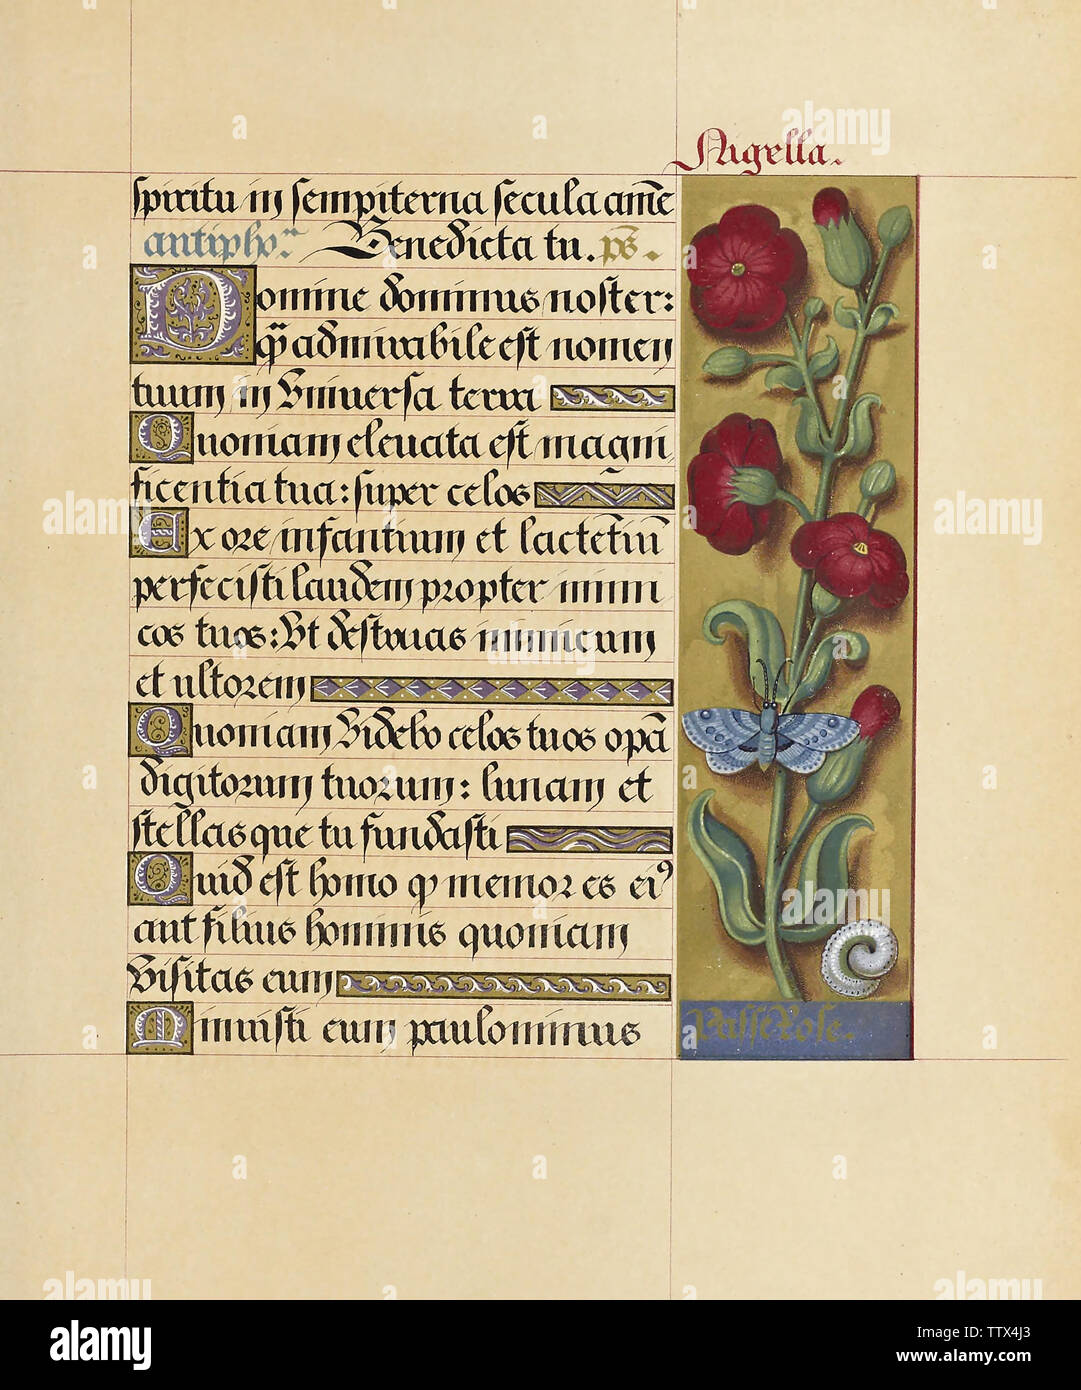 Nigella.
spiritu in sempiterna secula ame̅
antipho. Benedicta tu. ps̅.
Domine dominus noster:
q̅ admirabile est nomen
tuum in Vniversa terra
Quoniam eleuata est magni
ficentia tua: super celos
Ex ore infantium et lacte̅tiu̅
perfecisti laudem propter inimi
cos tuos: Vt destruas inimicum
et ultorem
Quoniam Videbo celos tuos op̅a
digitorum tuorum: lunam et
stellas que tu fundasti
Quid est homo q̅ memor es eiꝰ
aut filius hominis quoniam
Visitas eum
Minuisti eum paulominus
Passe Rose.
alamy
Image ID: TTX4J3
www.alamy.com